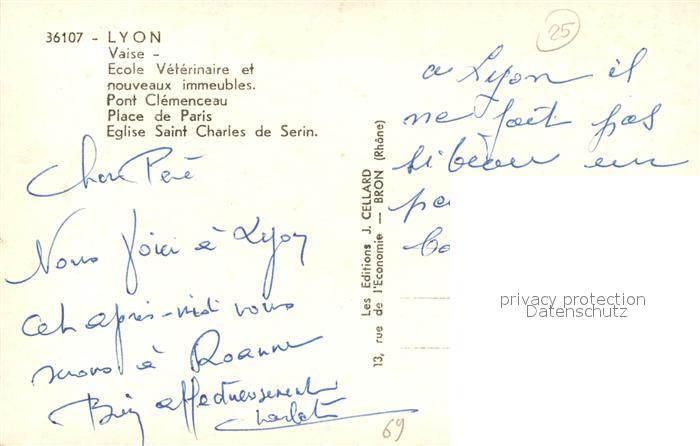 36107 - LYON
Vaise -
Ecole Vétérinaire et
nouveaux immeubles.
Pont Clémenceau
Place de Paris
Eglise Saint Charles de Serin.
25
Cher Père
Nous voici à Lyon
cet après-midi nous
serons à Roanne
Bien affectueusement
Les Editions J. CELLARD
13, rue de l'Economie — BRON (Rhône)
à Lyon il
ne fait pas
si beau
privacy protection
Datenschutz
69